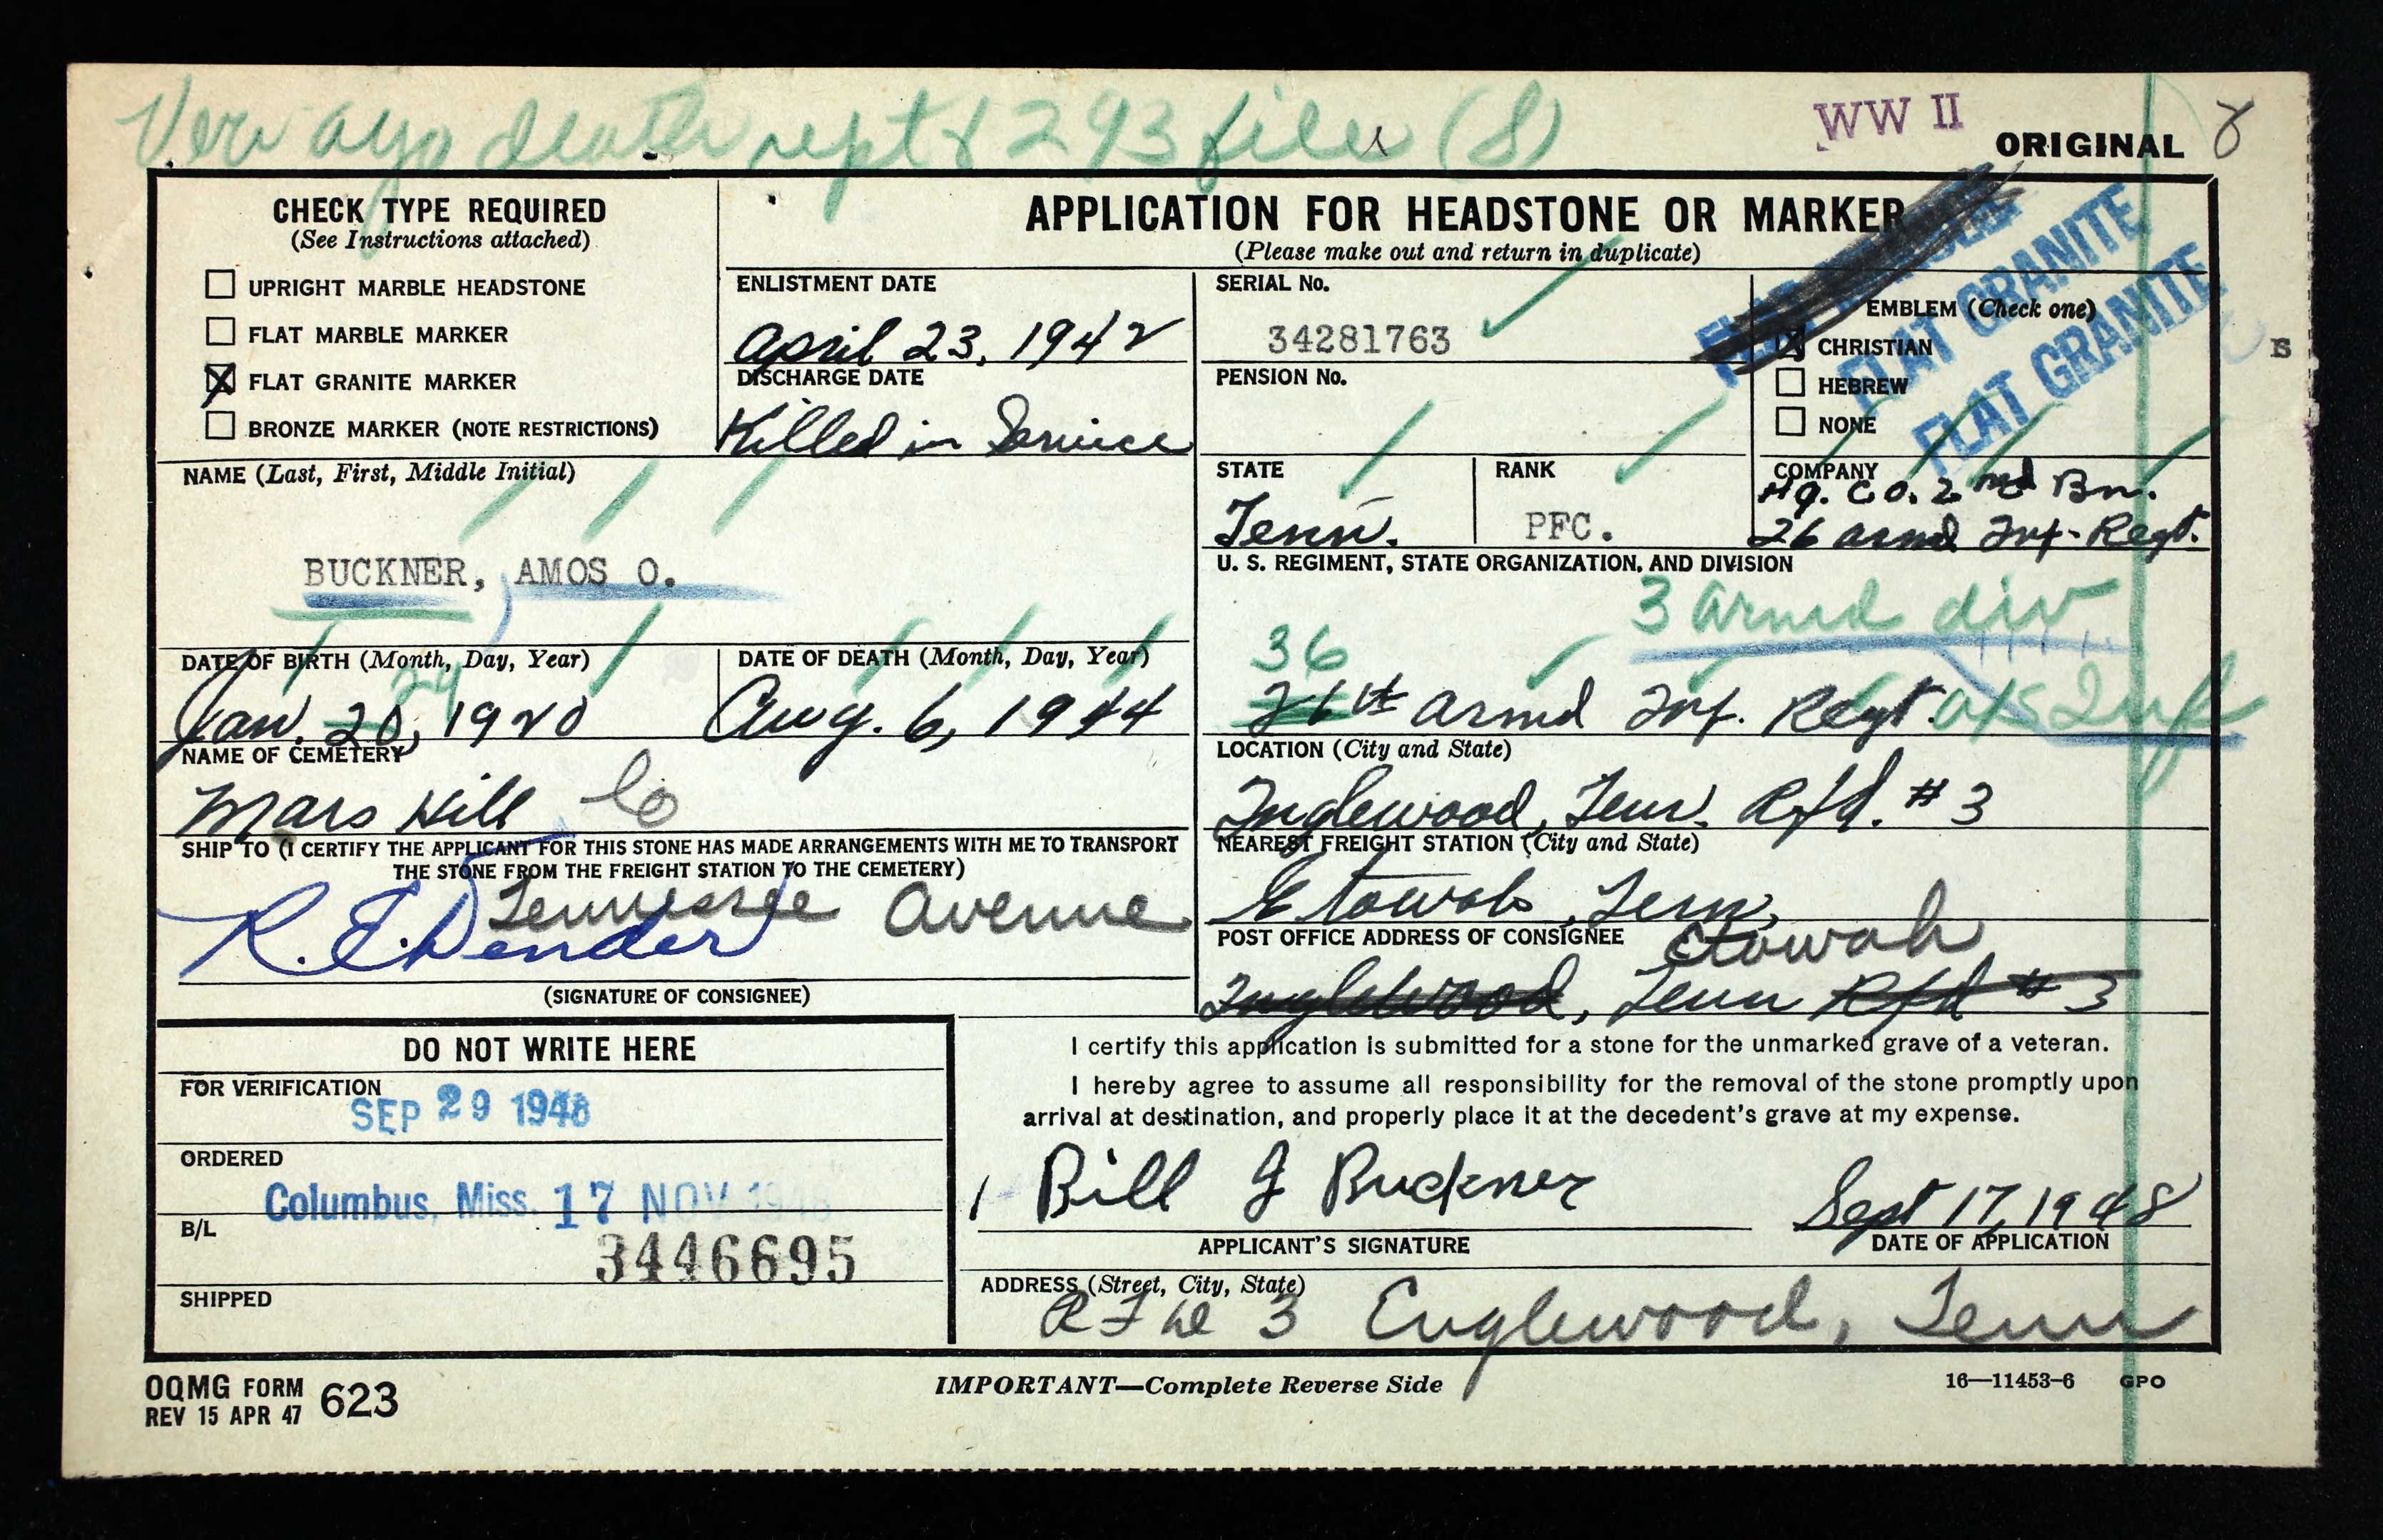 Veri ago death rept & 293 file (S)
WW II
ORIGINAL 8
CHECK TYPE REQUIRED
(See Instructions attached)
UPRIGHT MARBLE HEADSTONE
FLAT MARBLE MARKER
FLAT GRANITE MARKER
BRONZE MARKER (NOTE RESTRICTIONS)
APPLICATION FOR HEADSTONE OR MARKER
(Please make out and return in duplicate)
ENLISTMENT DATE
April 23, 1942
DISCHARGE DATE
Killed in Service
SERIAL No.
34281763
PENSION No.
EMBLEM (Check one)
CHRISTIAN
HEBREW
NONE
FLAT GRANITE
FLAT GRANITE
S
NAME (Last, First, Middle Initial)
BUCKNER, AMOS O.
STATE
Tenn.
RANK
PFC.
COMPANY
Hq. Co. 2nd Bn.
26 Armd Inf. Regt.
U. S. REGIMENT, STATE ORGANIZATION, AND DIVISION
3 Armd div
36
26th Armd Inf. Regt. a/s Inf
DATE OF BIRTH (Month, Day, Year)
29
Jan. 20, 1920
DATE OF DEATH (Month, Day, Year)
Aug. 6, 1944
NAME OF CEMETERY
Mars Hill Co
LOCATION (City and State)
Inglewood, Tenn. Rfd. # 3
SHIP TO (I CERTIFY THE APPLICANT FOR THIS STONE HAS MADE ARRANGEMENTS WITH ME TO TRANSPORT
THE STONE FROM THE FREIGHT STATION TO THE CEMETERY)
Tennessee Avenue
R. E. Dender
(SIGNATURE OF CONSIGNEE)
NEAREST FREIGHT STATION (City and State)
Etowah, Tenn.
POST OFFICE ADDRESS OF CONSIGNEE
Etowah
Inglewood, Tenn Rfd # 3
DO NOT WRITE HERE
FOR VERIFICATION
SEP 29 1948
ORDERED
Columbus, Miss. 17 NOV 1948
B/L
3446695
SHIPPED
I certify this application is submitted for a stone for the unmarked grave of a veteran.
I hereby agree to assume all responsibility for the removal of the stone promptly upon
arrival at destination, and properly place it at the decedent's grave at my expense.
Bill G Buckner
Sept 17, 1948
APPLICANT'S SIGNATURE
DATE OF APPLICATION
ADDRESS (Street, City, State)
RFD 3 Englewood, Tenn
OQMG FORM 623
REV 15 APR 47
IMPORTANT—Complete Reverse Side
16—11453-6 GPO